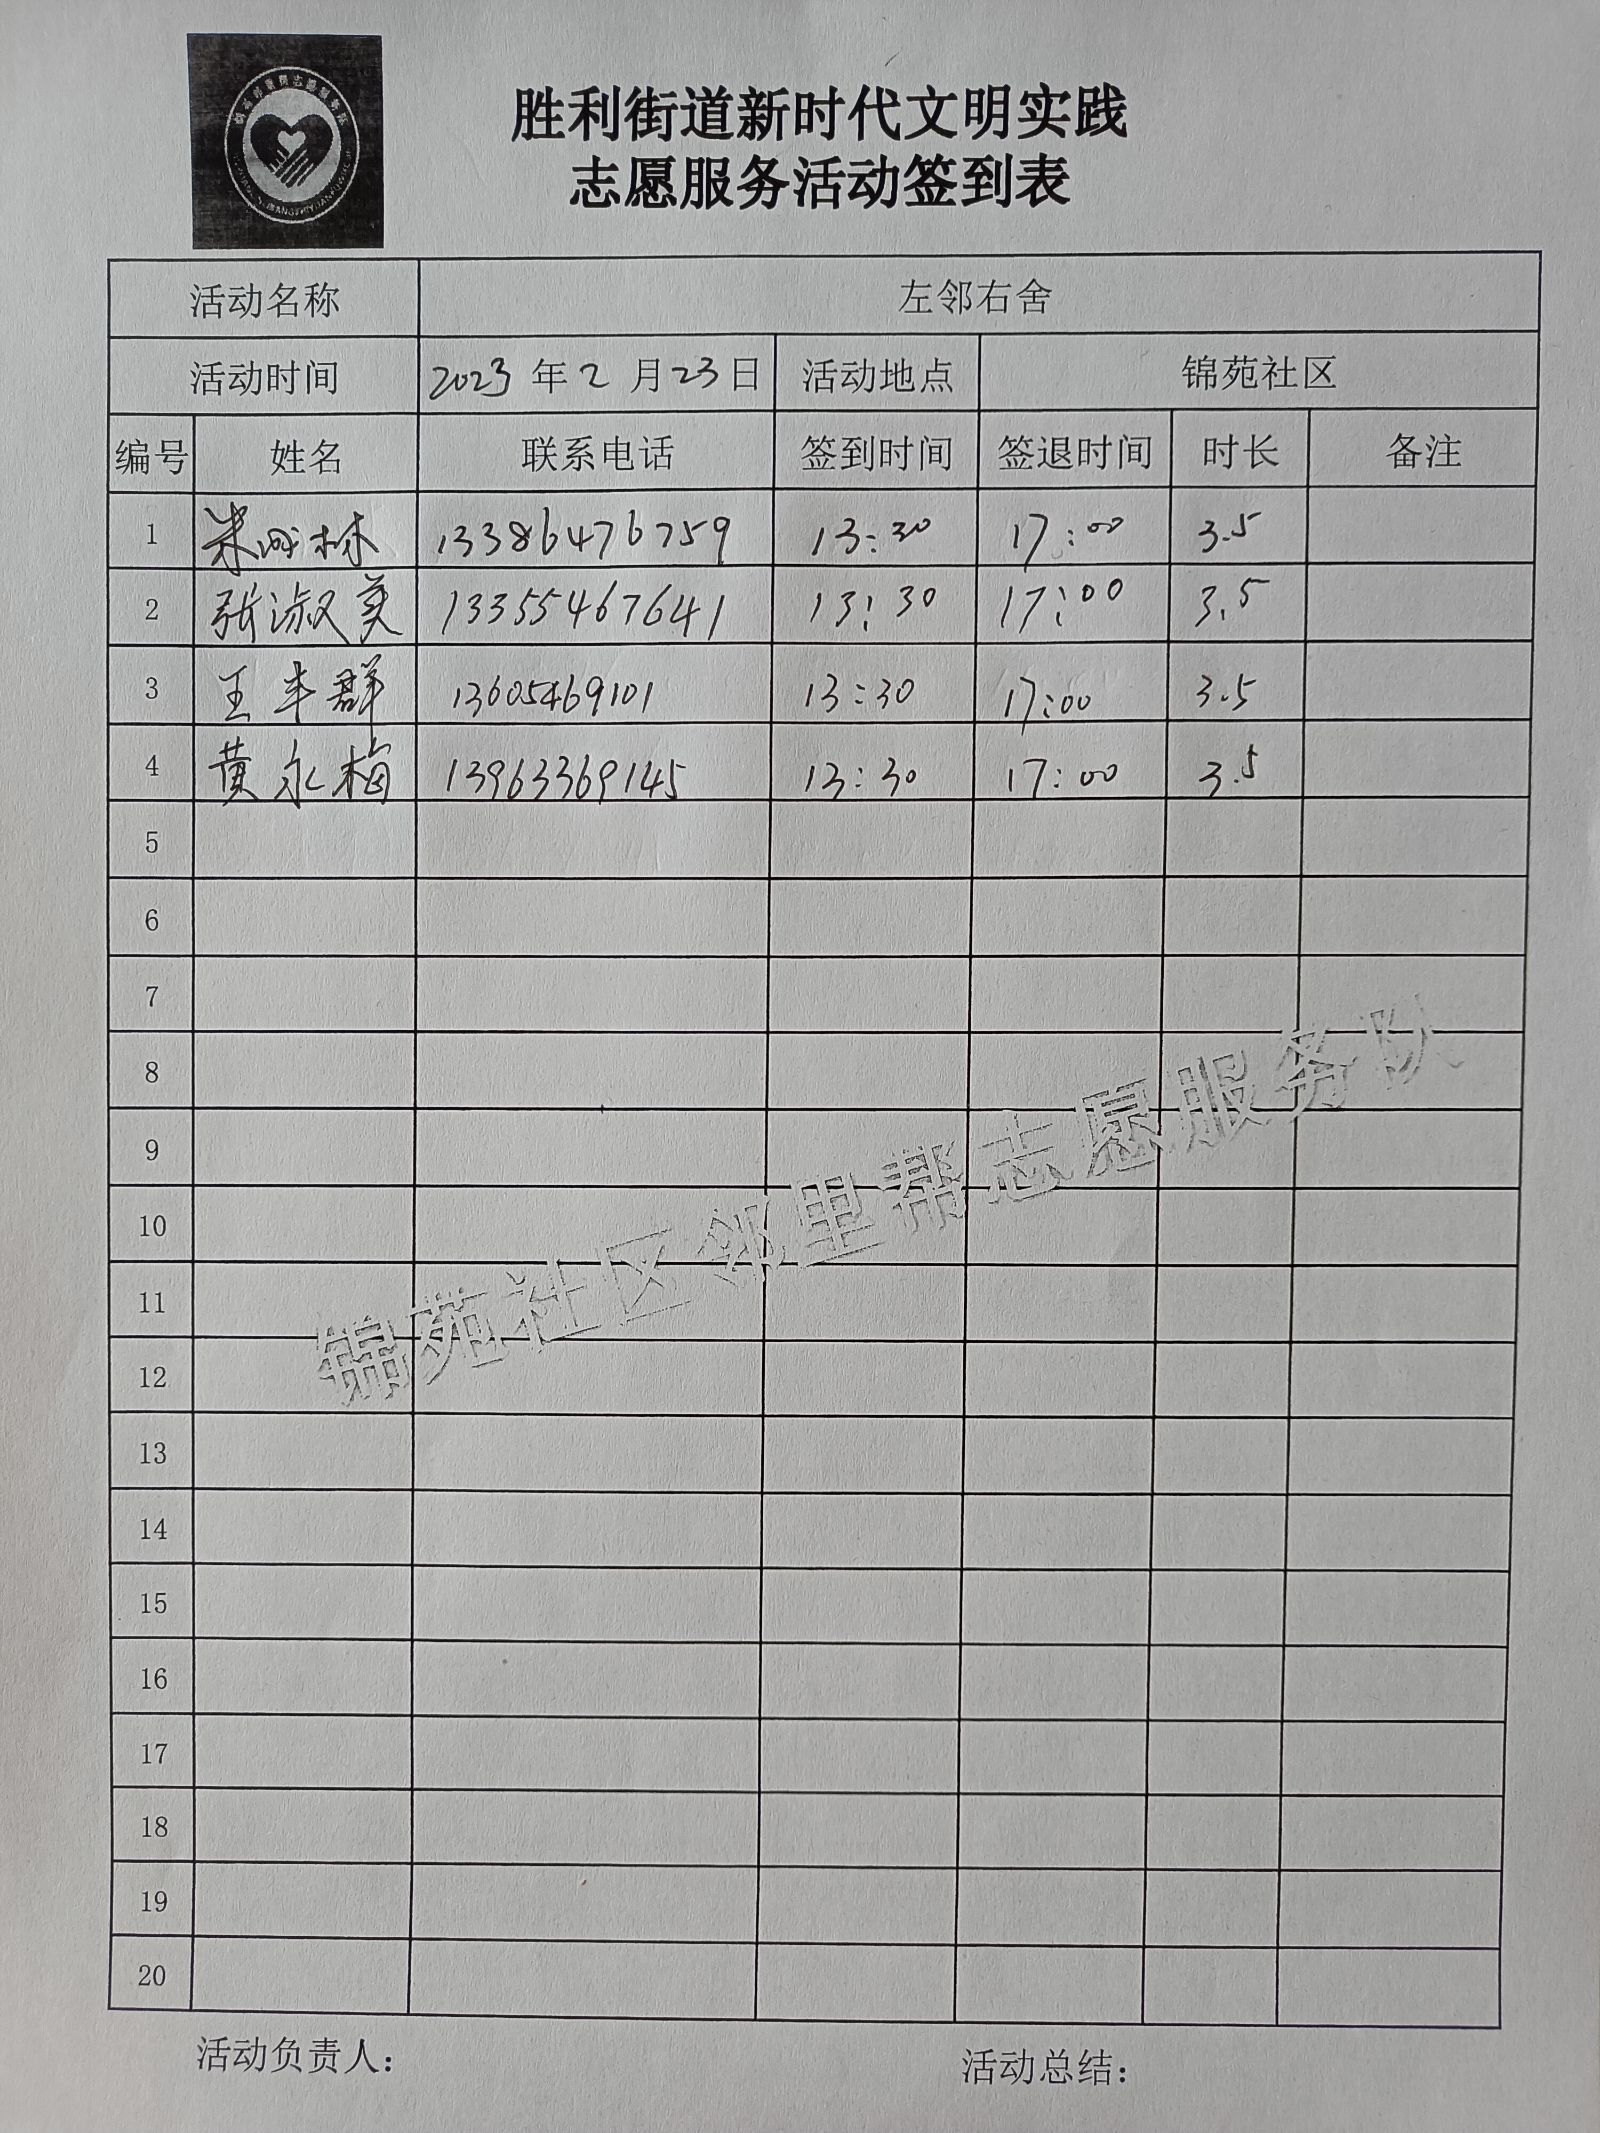 胜利街道新时代文明实践
志愿服务活动签到表
活动名称 左邻右舍
活动时间 2023 年 2 月 23 日 活动地点 锦苑社区
编号 姓名 联系电话 签到时间 签退时间 时长 备注
1 13386476759 13:30 17:00 3.5
2 张淑美 13355467641 13:30 17:00 3.5
3 王丰群 13605469101 13:30 17:00 3.5
4 黄永梅 13963369145 13:30 17:00 3.5
5
6
7
8
9
10
11
12
13
14
15
16
17
18
19
20
锦苑社区邻里帮志愿服务队
活动负责人: 活动总结: